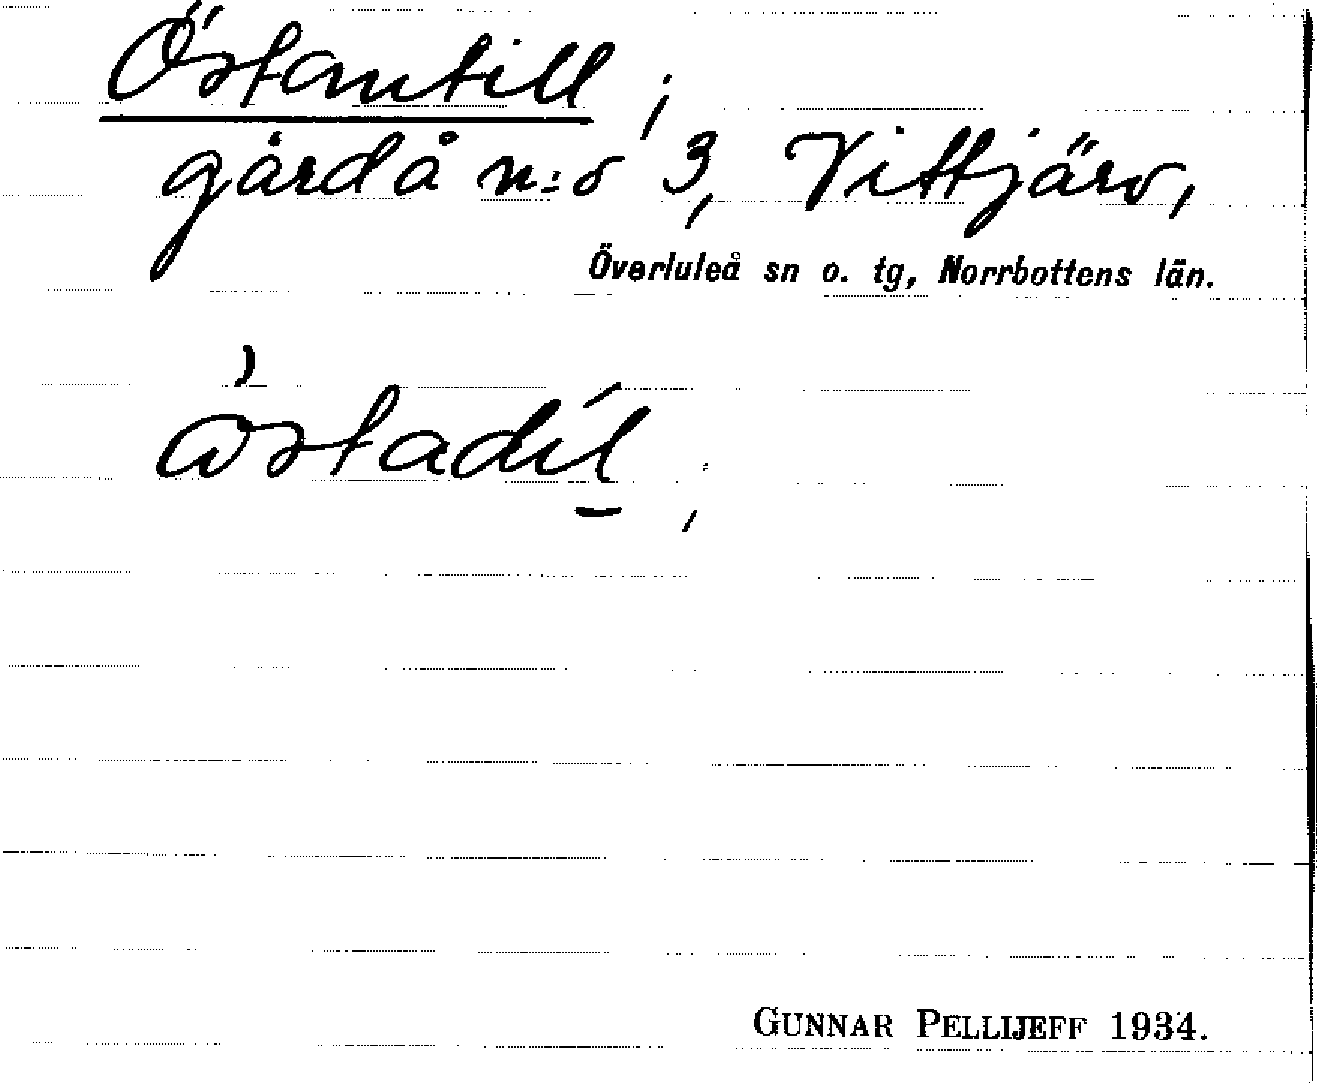 Östantill,
gård å n:o 3, Vittjärv,
Överluleå sn o. tg, Norrbottens län.
GUNNAR PELLIJEFF 1934.